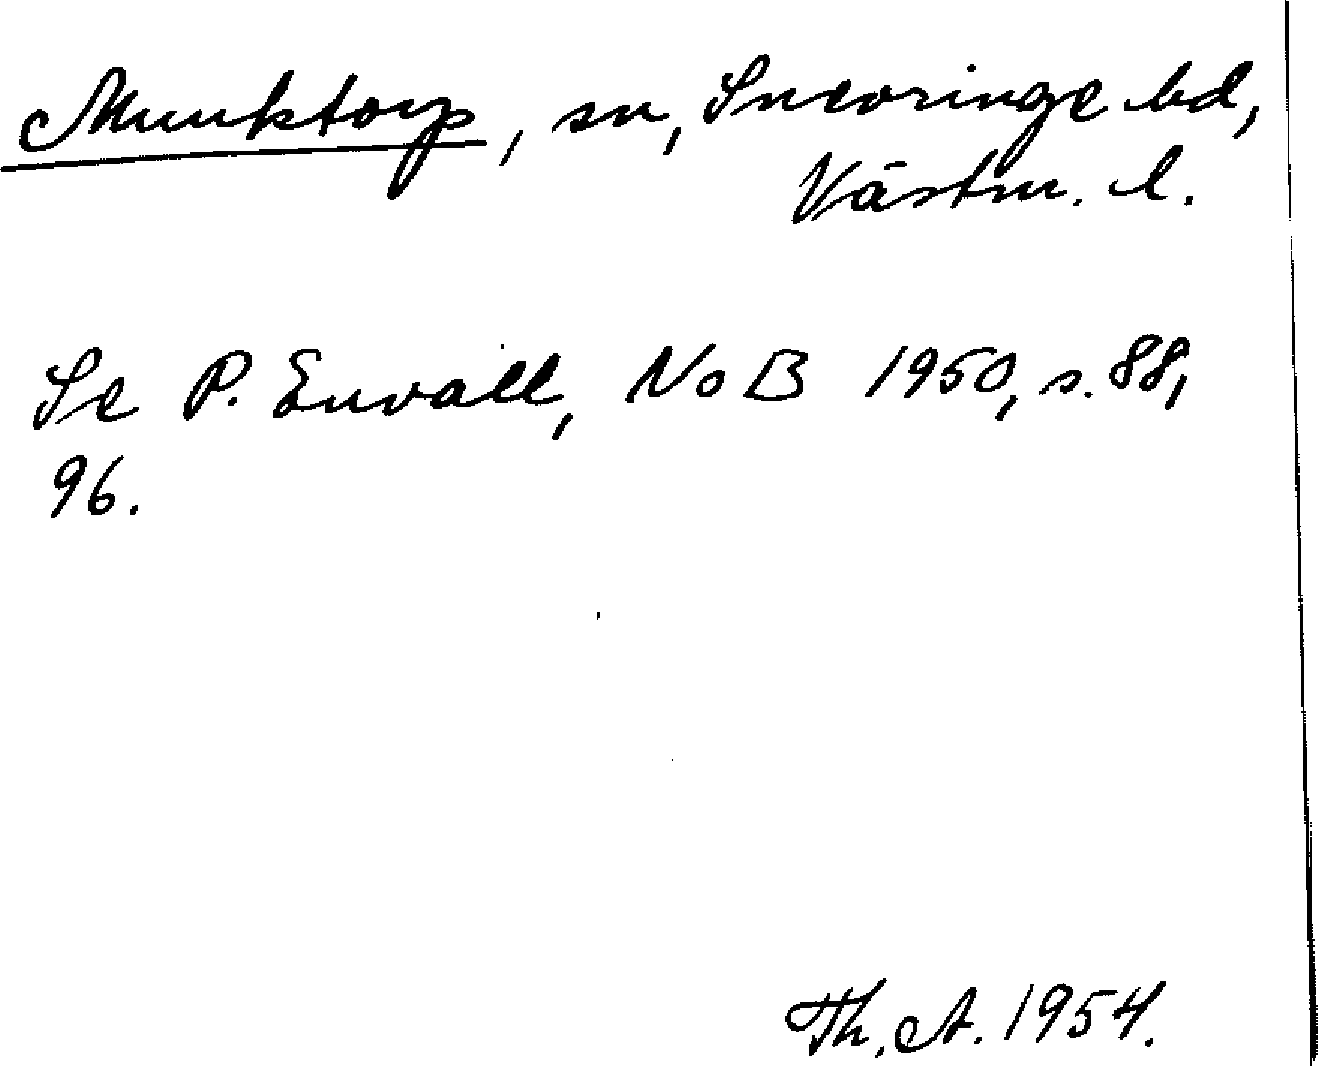 Munktorp, sn, Snevringe hd,
Västm. l.
Se P. Envall, NoB 1950, s. 88,
96.
Th. A. 1954.